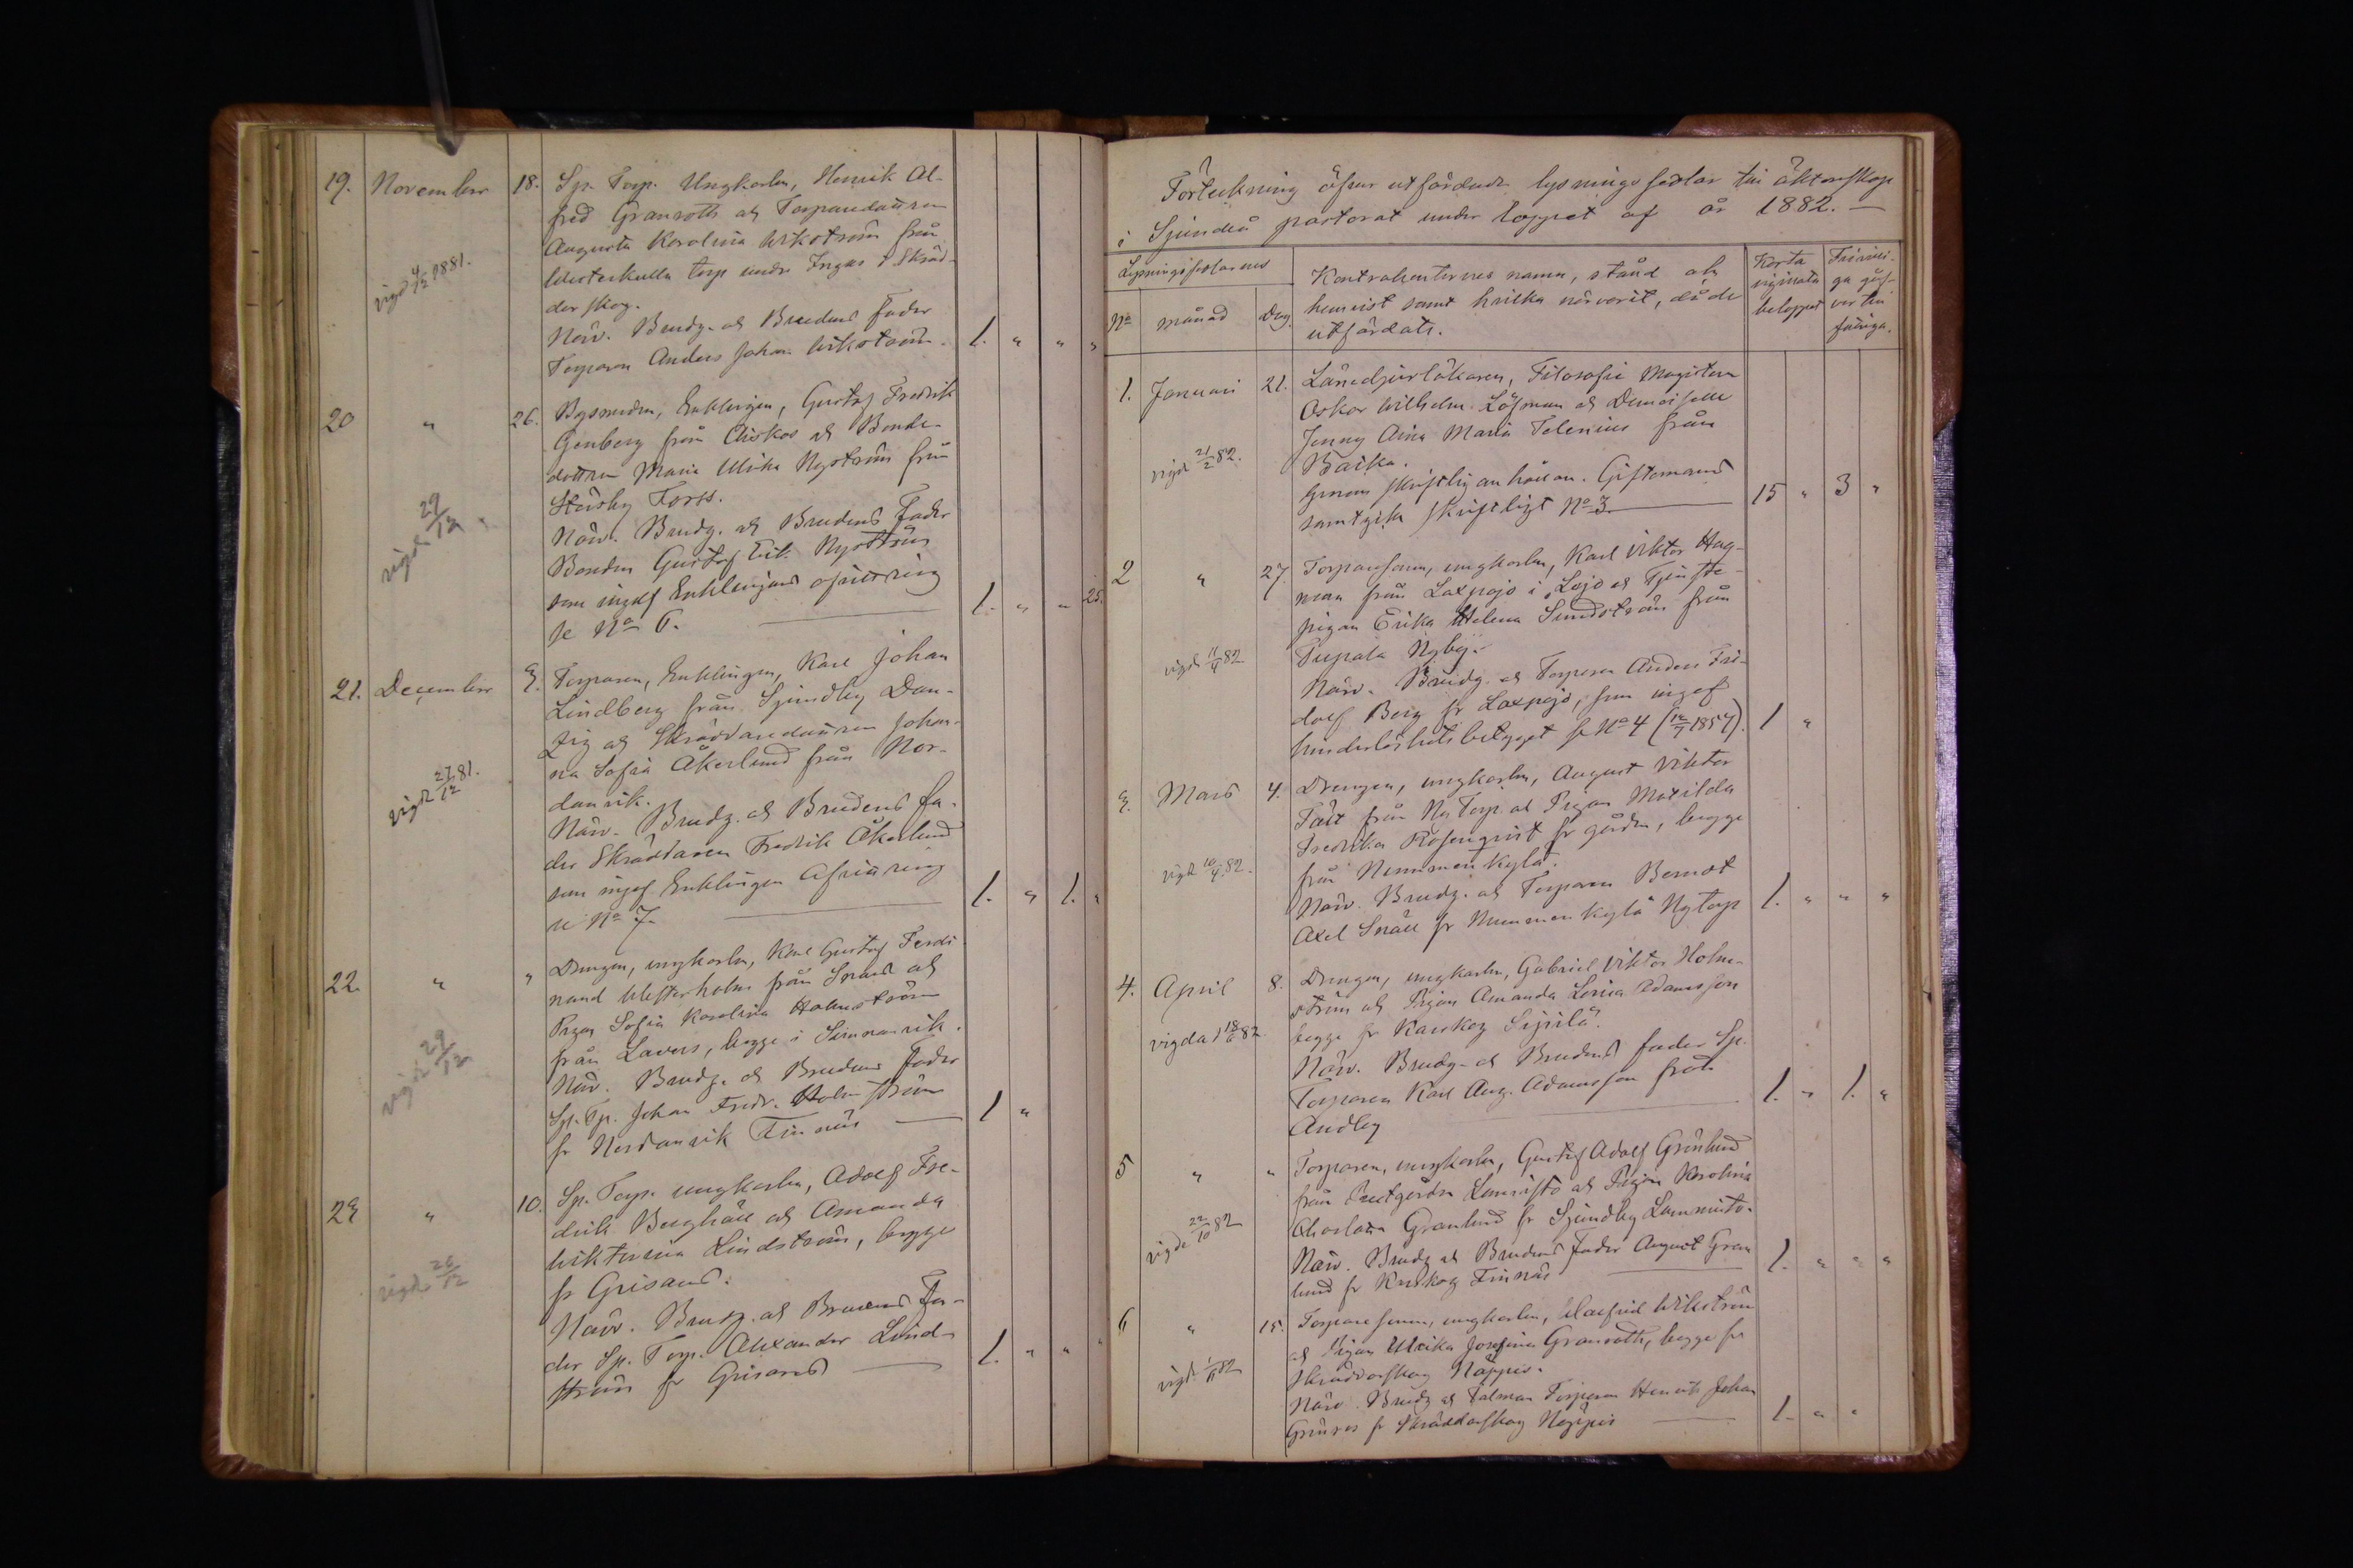 19. November 18. Sp. Torp. Ungkarlen, Henrik Al-
fred Granroth och Torparedottren
Augusta Karolina Wikström från
Westerkulla torp under Ingars i Skräd-
darskog.
vigd 4/12 1881.
Närv. Brudg. och Brudens fader
Torparen Anders Johan Wikström. 1. " " "
20 " 26. Bysmeden, Enklingen, Gustaf Fredrik
Genberg från Chiskos och Bonde-
dottren Maria Ulrika Nyström från
Störsby Forss.
vigd 29/12
Närv. Brudg. och Brudens Fader
Bonden Gustaf Erik Nyström
som ingaf Enklingens afvittring
se No 6. 1. " " 25.
21. December 3. Torparen, Enklingen, Karl Johan
Lindberg från Sjundby Dan-
zig och Skräddaredottren Johan-
na Sofia Åkerlund från Nor-
danvik.
vigd 27/12 81.
Närv. Brudg. och Brudens fa-
der Skräddaren Fredrik Åkerlund
som ingaf Enklingen Afvittring
se No 7. 1. " 1. "
22. " " Drengen, ungkarlen, Karl Gustaf Ferdi
nand Westerholm från Svans och
Pigan Sofia Karolina Holmström
från Lavers, begge i Sunnanvik.
vigd 29/12
Närv. Brudg. och Brudens fader
Sp. Tp. Johan Fredr. Holmström
fr Nordanvik Finnäs 1 "
23 " 10. Sp. Torp. ungkarlen, Adolf Fre-
drik Berghäll och Amanda
Wiktorina Lindström, begge
fr Grisans.
vigde 26/12
Närv. Brudg. och Brudens Fa-
der Sp. Torp. Alexander Lind-
ström fr Grisans 1. " " "
Förteckning öfver utfärdade lysningssedlar till äktenskap
i Sjundeå pastorat under loppet af år 1882. —
Lysningssedlarnes
No månad Dag.
Kontrahenternes namn, stånd och
hemvist samt hvilka närvarit, då de
utfärdats.
Korta
beloppet
Frivilli-
ga gåf-
vor till
fattiga.
1. Januari 21. Länedjurläkaren, Filosofie Magistern
Oskar Wilhelm Löfman och Demoiselle
Jenny Aina Maria Telenius från
Backa.
vigd 21/2 82.
Genom skriftlig anhållan. Giftomans
samtycke skriftligt No 3 15 " 3 "
2 " 27 Torparesonen, ungkarlen, Karl Viktor Hag-
man från Laxpojo i Lojo och Tjenste-
pigan Erika Helena Sundström från
Purpala Nyby.
vigd 11/4 82
Närv. Brudg. och Torparen Anders Fri-
dolf Berg fr Laxpojo, som ingaf
hinderlöshetsbetyget se No 4 (12/7 1857). 1 "
3. Mars 4. Drengen, ungkarlen, August Viktor
Fält från Ny Torp. och Pigan Matilda
Fredrika Rosenqvist fr gården, begge
från Nummenkylä.
vigd 10/4 82.
Närv. Brudg. och Torparen Berndt
Axel Snäll fr Nummenkylä Nytorp 1. " " "
4. April 8. Drengen, ungkarlen, Gabriel Viktor Holm-
ström och Pigan Amanda Lovisa Adamsson
begge fr Karskog Sipilä.
vigda d 18/6 82
Närv. Brudg. och Brudens fader Sp.
Torparen Karl Aug. Adamsson från
Andby 1. " 1. "
5 " " Torparen, ungkarlen, Gustaf Adolf Grönlund
från Lunnisto och Pigan Karolina
Charlotta Granlund fr Sjundby Lammisto.
vigde 22/10 82
Närv. Brudg. och Brudens Fader August Gran
lund fr Karskog Finnäs 1. " " "
6 " 15. Torparesonen, ungkarlen, Walfrid Wikström
och Pigan Ulrika Josefina Granroth, begge fr
Skräddarskog Näppis.
Närv. Brudg. och Talman Torparen Henrik Johan
Grönros fr Skräddarskog Näppis 1. " "